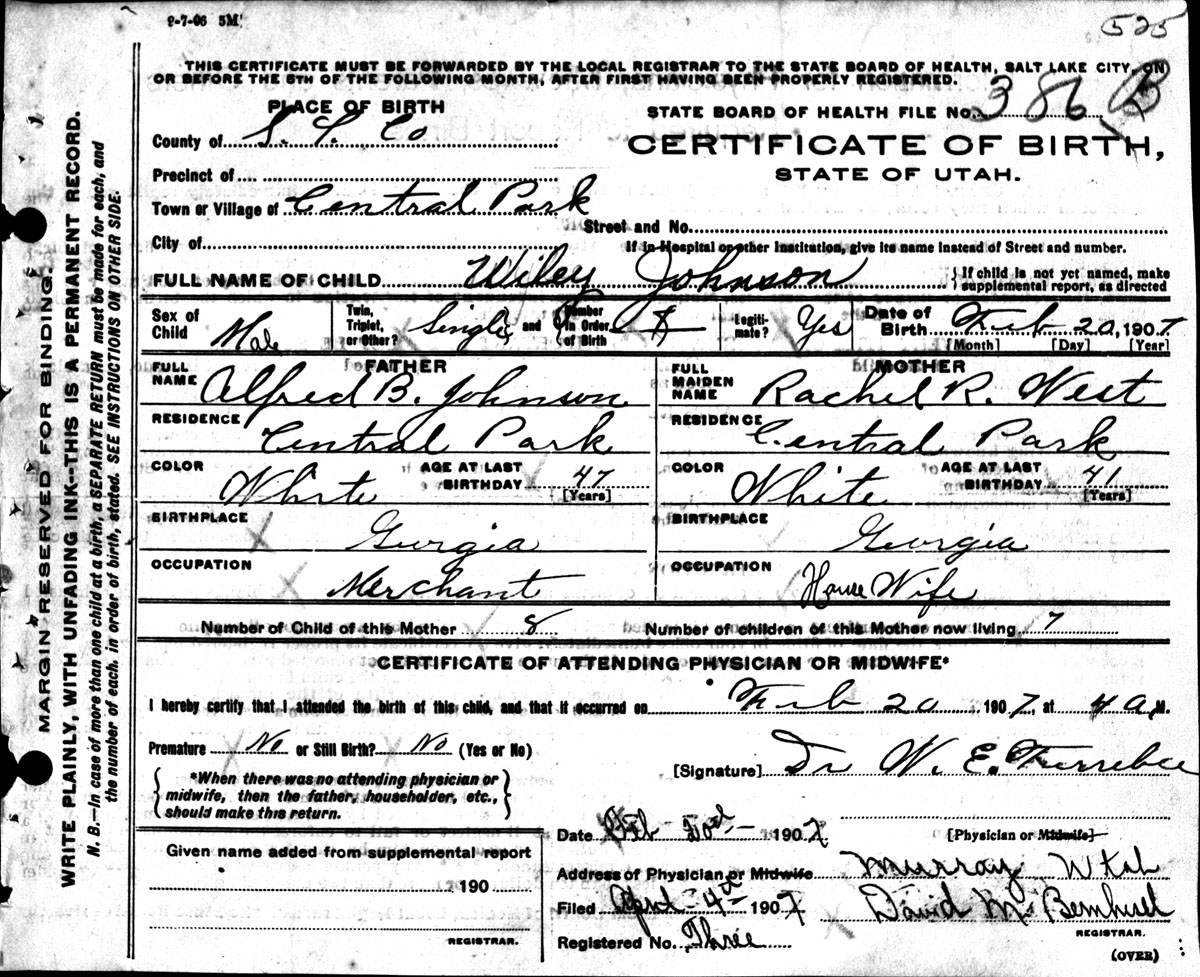 2-7-06 5M
525
THIS CERTIFICATE MUST BE FORWARDED BY THE LOCAL REGISTRAR TO THE STATE BOARD OF HEALTH, SALT LAKE CITY, ON
OR BEFORE THE 5TH OF THE FOLLOWING MONTH, AFTER FIRST HAVING BEEN PROPERLY REGISTERED.
PLACE OF BIRTH
STATE BOARD OF HEALTH FILE No. 386 B
County of S. L. Co
CERTIFICATE OF BIRTH,
STATE OF UTAH.
Precinct of
Town or Village of Central Park
Street and No.
City of
If in Hospital or other Institution, give its name instead of Street and number.
FULL NAME OF CHILD Wiley Johnson
If child is not yet named, make
supplemental report, as directed
Sex of Child Male
Twin, Triplet, or Other? Single and Number in Order of Birth
Legitimate? Yes
Date of Birth Feb 20, 1907
[Month] [Day] [Year]
FATHER
FULL NAME Alfred B. Johnson
MOTHER
FULL MAIDEN NAME Rachel R. West
RESIDENCE Central Park
RESIDENCE Central Park
COLOR White AGE AT LAST BIRTHDAY 47 [Years]
COLOR White AGE AT LAST BIRTHDAY 41 [Years]
BIRTHPLACE Georgia
BIRTHPLACE Georgia
OCCUPATION Merchant
OCCUPATION House Wife
Number of Child of this Mother 8 Number of children of this Mother now living 7
CERTIFICATE OF ATTENDING PHYSICIAN OR MIDWIFE*
I hereby certify that I attended the birth of this child, and that it occurred on Feb 20 1907, at 4 a.M.
Premature No or Still Birth? No (Yes or No)
[Signature] Dr W. E. Ferrebee
*When there was no attending physician or
midwife, then the father, householder, etc.,
should make this return.
Date Feb 1907 [Physician or Midwife]
Given name added from supplemental report
190
REGISTRAR.
Address of Physician or Midwife Murray Utah
Filed April 4th 1907 David M Bernhisel
REGISTRAR.
Registered No. Three
(OVER)
MARGIN RESERVED FOR BINDING.
WRITE PLAINLY, WITH UNFADING INK--THIS IS A PERMANENT RECORD.
N. B.—In case of more than one child at a birth, a SEPARATE RETURN must be made for each, and
the number of each, in order of birth, stated. SEE INSTRUCTIONS ON OTHER SIDE.